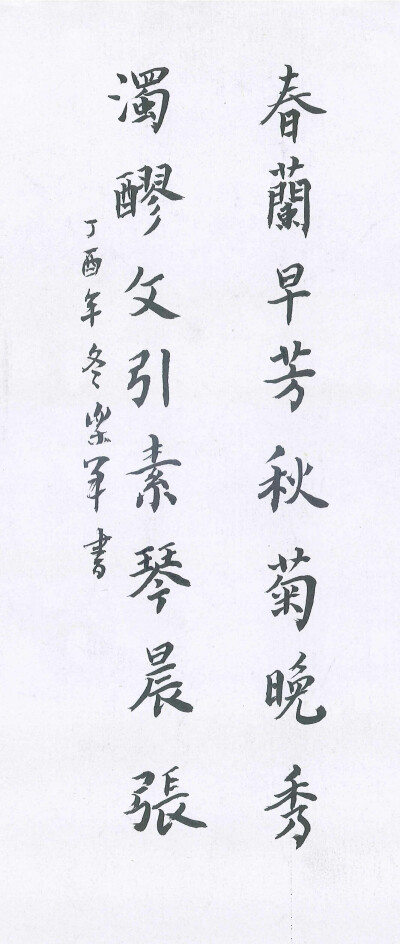 春蘭早芳秋菊晚秀
濁醪文引素琴晨張
丁酉年冬樂軍書